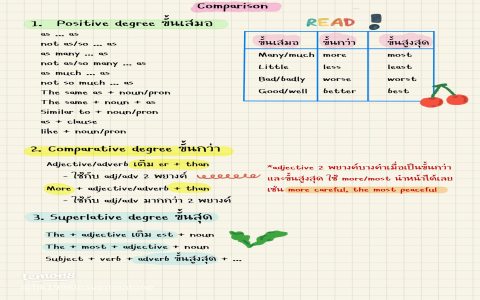 Comparison
READ !
1. Positive degree ขั้นเสมอ
as ... as
not as/so ... as
as many ... as
not as/so many ... as
as much ... as
not so much ... as
The same as + noun/pron
The same + noun + as
Similar to + noun/pron
as + clause
like + noun/pron
ขั้นเสมอ ขั้นกว่า ขั้นสูงสุด
Many/much more most
Little less least
Bad/badly worse worst
Good/well better best
2. Comparative degree ขั้นกว่า
Adjective/adverb เติม er + than
- ใช้กับ adj/adv 2 พยางค์
More + adjective/adverb + than
- ใช้กับ adj/adv มากกว่า 2 พยางค์
*adjective 2 พยางค์บางคำเมื่อเป็นขั้นกว่า
และขั้นสูงสุด ใช้ more/most นำหน้าได้เลย
เช่น more careful, the most peaceful
3. Superlative degree ขั้นสุด
The + adjective เติม est + noun
The + most + adjective + noun
Subject + verb + adverb ขั้นสูงสุด + ...